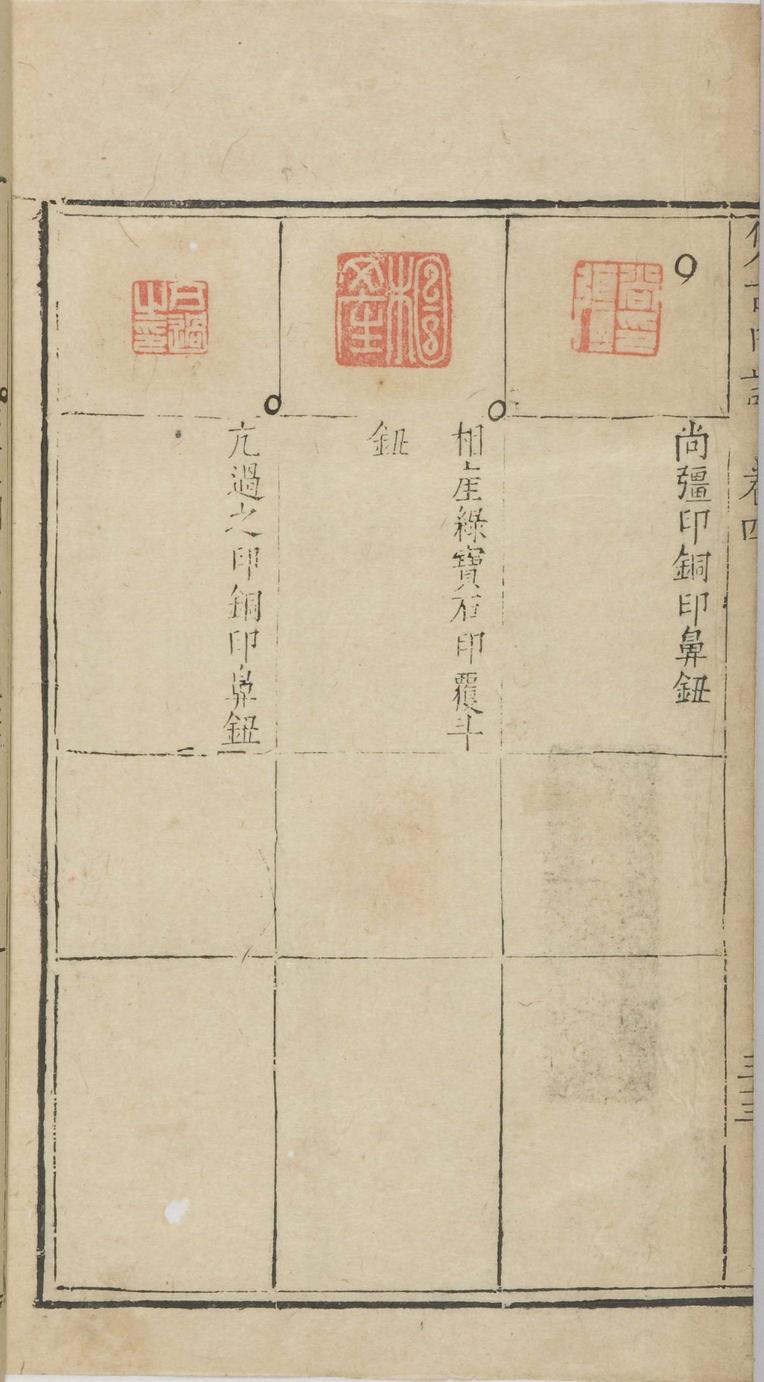 卷四
尚彊印銅印鼻鈕
相產綠寶石印覆斗
鈕
亢過之印銅印鼻鈕
三三